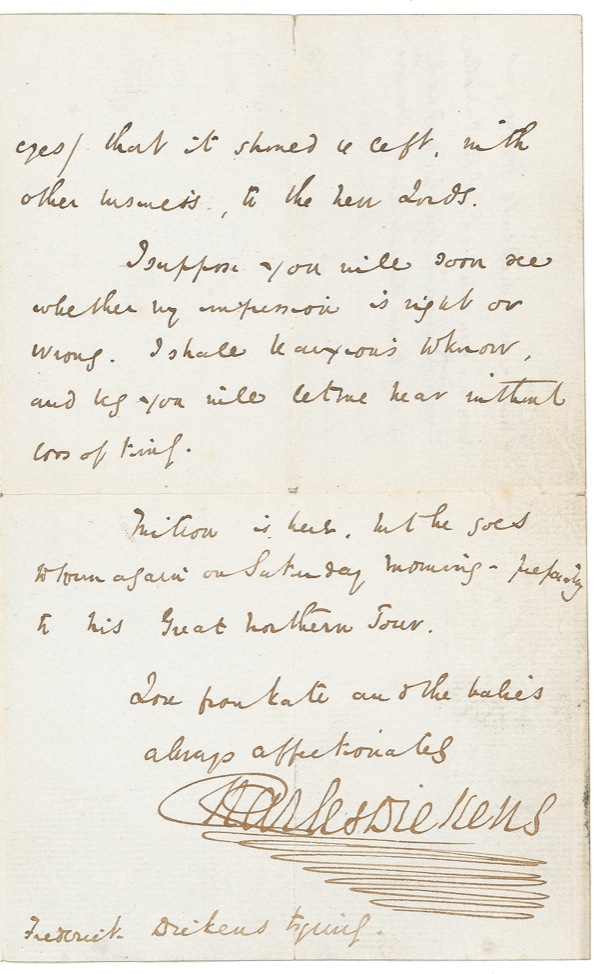 eyes) that it should be left, with
other business, to the new Lords.
I suppose you will soon see
whether my impression is right or
wrong. I shall be anxious to know,
and beg you will let me hear without
loss of time.
Mitton is here, but he goes
to town again on Saturday morning - preparatory
to his Great Northern Tour.
Love from Kate and the babies
always affectionately
Charles Dickens
Frederick Dickens Esquire.